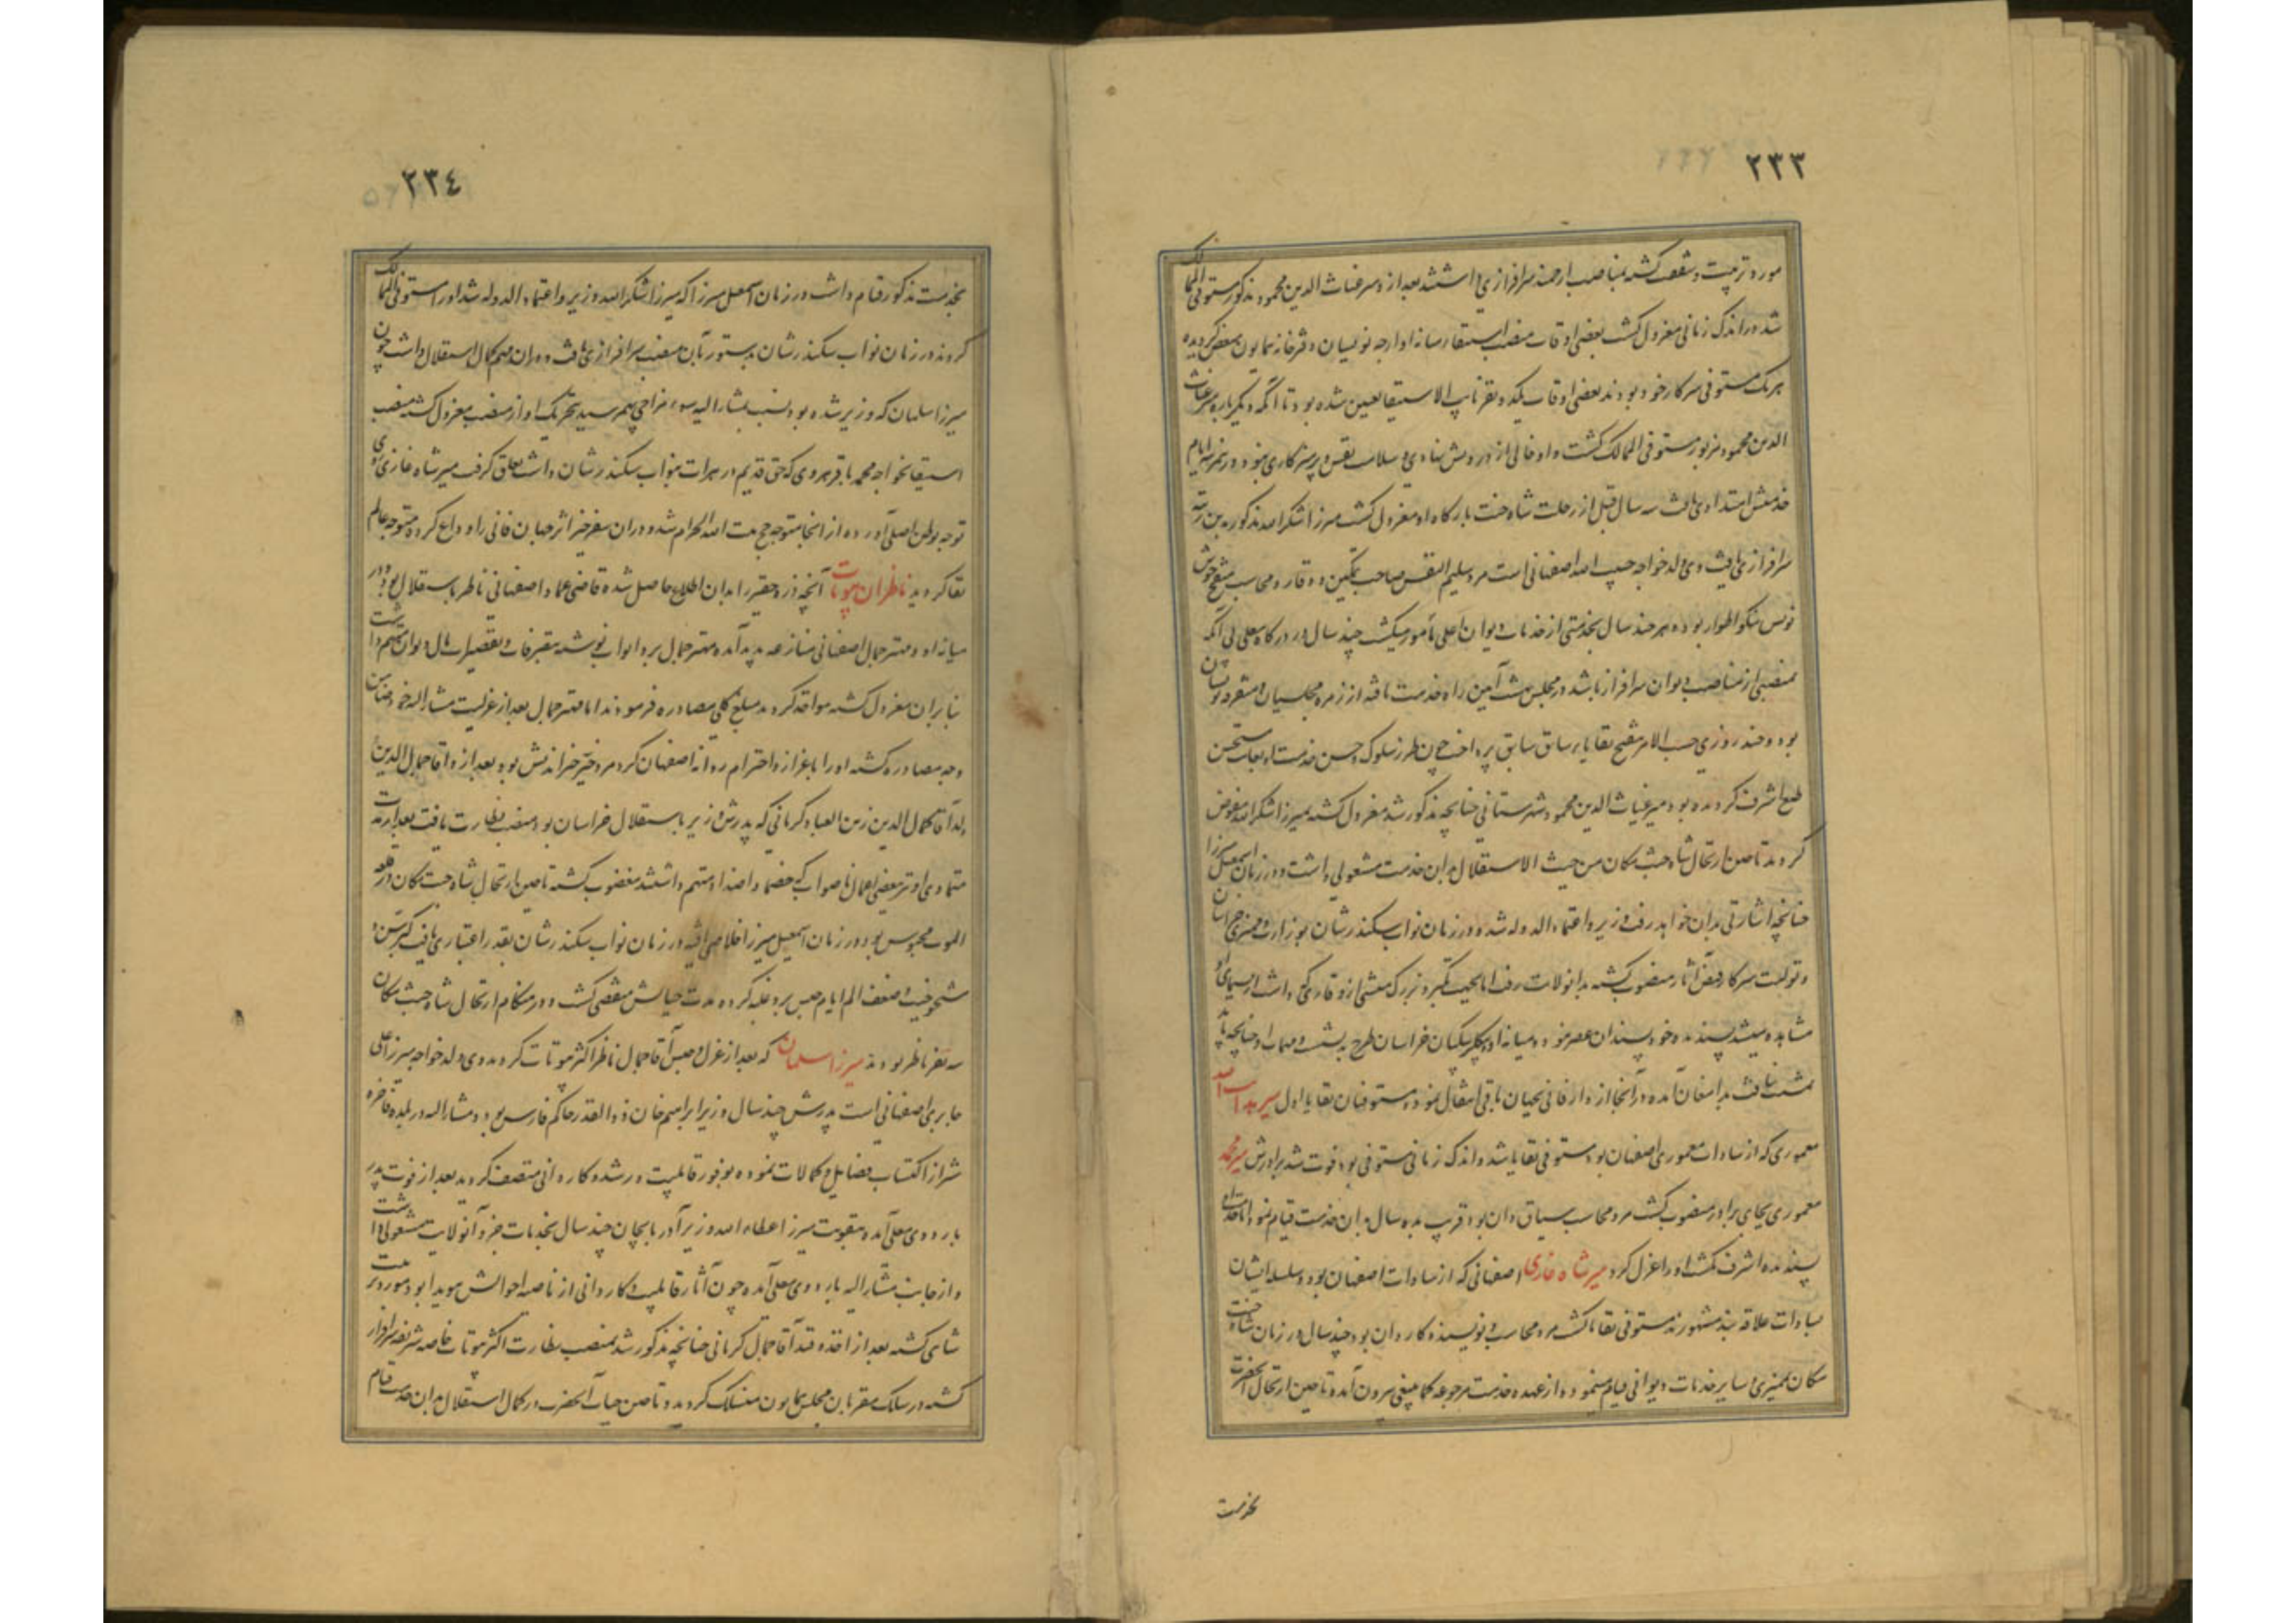 ۲۳۳
مورد تربیت و شفقت کشته بمناصب ارجمند سرافرازی داشتند بعد از و میر غیاث الدین محمود مذکور مستوفی الممالک
شد و در اندک زمانی معزول کشت بعضی اوقات منصب استیفا رسانه اوارجه نویسان دفترخانه همایون مفوض کردیده
هر یک مستوفی سرکار خود بودند بعضی اوقات یکدو نفر نایب الاستیفا تعیین شده بود تا آنکه دیکر باره میر غیاث
الدین محمود مزبور مستوفی الممالک کشت و او خالی از درویش نهادی و سلامت نفس و پرهیزکاری نبود و درین مرتبه ایام
خدمتش امتداد یافت سه سال قبل از رحلت شاه جنت بارکاه او معزول کشت میرزا شکرالله مذکور بدین رتبه
سرافرازی یافت وی ولد خواجه حبیب الله اصفهانی است مرد سلیم النفس صاحب تمکین و وقار و محاسب منقح خوش
نویس نیکو اطوار بوده هر چند سال بخدمتی از خدمات دیوان اعلی مأمور میکشت چند سال در درکاه معلی بی آنکه
بمنصبی از مناصب دیوان سرافراز باشد در مجلس بهشت آیین راه خدمت یافته از زمره مجلسیان و مقربه نویسان
بود و چند روزی حسب الامر بتنقیح بقایا بر سیاق سابق پرداخت چون طرز سلوک و حسن خدمت او بغایت مستحسن
طبع اشرف کردیده بود میر غیاث الدین محمود شهرستانی چنانچه مذکور شد معزول کشته بمیرزا شکرالله مفوض
کردید تا حین ارتحال شاه جنت مکان من حیث الاستقلال بدان خدمت مشغولی داشت و در زمان اسمعیل میرزا
چنانچه اشارتی بدان خواهد رفت وزیر و اعتماد الدوله شد و در زمان نواب سکندر شان بوزارت و ممیزی خراسان
و تولیت سرکار فیض آثار منصوب کشته بدانولایت رفت اما بجهت تکبر و بزرک منشی از و قاری که داشت از سیمای او
مشاهده میشد پسندیده خود پسندان عصر نبود و میانه او و بیکلربیکیان خراسان طرح به نشست و مهمات او چنانچه باید
تمشیت نیافت بدامغان آمده و در آنجا از دار فانی بجهان باقی انتقال نمود و مستوفیان بقایا اول میر سید
معموری که از سادات معموری اصفهان بود مستوفی بقایا شد و اندک زمانی مستوفی بود فوت شد برادرش میر محمد
معموری بجای برادر منصوب کشت مرد محاسب سیاق دان بود قریب بده سال بدان خدمت قیام نمود اما خدمت او
پسندیده اشرف نکشت او را عزل کرد میر شاه غازی اصفهانی که از سادات اصفهان بود و سلسله ایشان
بسادات علاقه بند مشهورند مستوفی بقایا کشت مرد محاسب و نویسنده کاردان بود چند سال در زمان شاه جنت
مکان بممیزی و سایر خدمات دیوانی قیام مینمود و از عهده خدمت مرجوعه کما ینبغی بیرون آمده تا حین ارتحال آنحضرت
بخدمت
۲۳٤
بخدمت مذکور قیام داشت و در زمان اسمعیل میرزا که میرزا شکرالله وزیر و اعتماد الدوله شد او را مستوفی الممالک
کردند و در زمان نواب سکندر شان بدستور بآن منصب سرافرازی یافت و در آن مهم کمال استقلال داشت چون
میرزا سلمان که وزیر شده بود نسبت بمشار الیه سوء مزاجی بهمرسید بتحریک او از منصب معزول کشته منصب
استیفا بخواجه محمد باقر هروی که حق قدیم در هرات بنواب سکندر شان داشت تعلق کرفت میر شاه غازی روی
توجه بوطن اصلی آورده از آنجا متوجه حج بیت الله الحرام شد و در آن سفر خیر اثر جهان فانی را وداع کرده متوجه عالم
بقا کردید ناظران بیوتات آنچه ذره حقیر را بدان اطلاع حاصل شده قاضی عماد اصفهانی ناظر باستقلال بود و در
میانه او و مهتر جمال اصفهانی منازعه پدید آمده مهتر جمال برو ابواب نوشته بتصرفات و تقصیرات مال دیوان متهم داشت
بنا بر آن معزول کشته مواخذ کردید مبلغ کلی مصادره فرمودند اما مهتر جمال بعد از عزلیت مشار الیه خود ضامن
وجه مصادره کشته او را باعزاز و احترام روانه اصفهان کرد مرد خیر خیر اندیش بود بعد از و آقا جمال الدین
ولد آقا کمال الدین زین العباد کرمانی که پدرش وزیر باستقلال خراسان بود منصب نظارت یافت بعد از مدت
متمادی او نیز ببعضی اعمال ناصواب که خصما و اضداد متهم داشتند مغضوب کشته تا حین ارتحال شاه جنت مکان در قلعه
الموت محبوس بود در زمان اسمعیل میرزا خلاصی یافته در زمان نواب سکندر شان بقدر اعتباری یافت کبر سن و
شیخوخیت و ضعف الم ایام حبس برو غلبه کرده مدت حیاتش منقضی کشت و در هنکام ارتحال شاه جنت مکان
سه نفر ناظر بودند میرزا سلمان که بعد از عزل و حبس آقا جمال ناظر اکثر بیوتات کردید وی ولد خواجه میرزا علی
جابری اصفهانی است پدرش چند سال وزیر ابراهیم خان ذوالقدر حاکم فارس بود و مشار الیه در بلده فاخره
شیراز اکتساب فضایل و کمالات نموده بوفور قابلیت و رشد و کاردانی متصف کردید بعد از فوت پدر
باردوی معلی آمده بتقویت میرزا عطاء الله وزیر آذربایجان چند سال بخدمات جزو آنولایت مشغولی داشت
و از جانب مشار الیه باردوی معلی آمده چون آثار قابلیت و کاردانی از ناصیه احوالش هویدا بود مورد تربیت
شاهی کشته بعد از اخذ و قید آقا جمال کرمانی چنانچه مذکور شد بمنصب نظارت اکثر بیوتات خاصه شریفه سرافراز
کشته در سلک مقربان مجلس همایون منسلک کردید و تا حین حیات آنحضرت در کمال استقلال بدان خدمت قیام